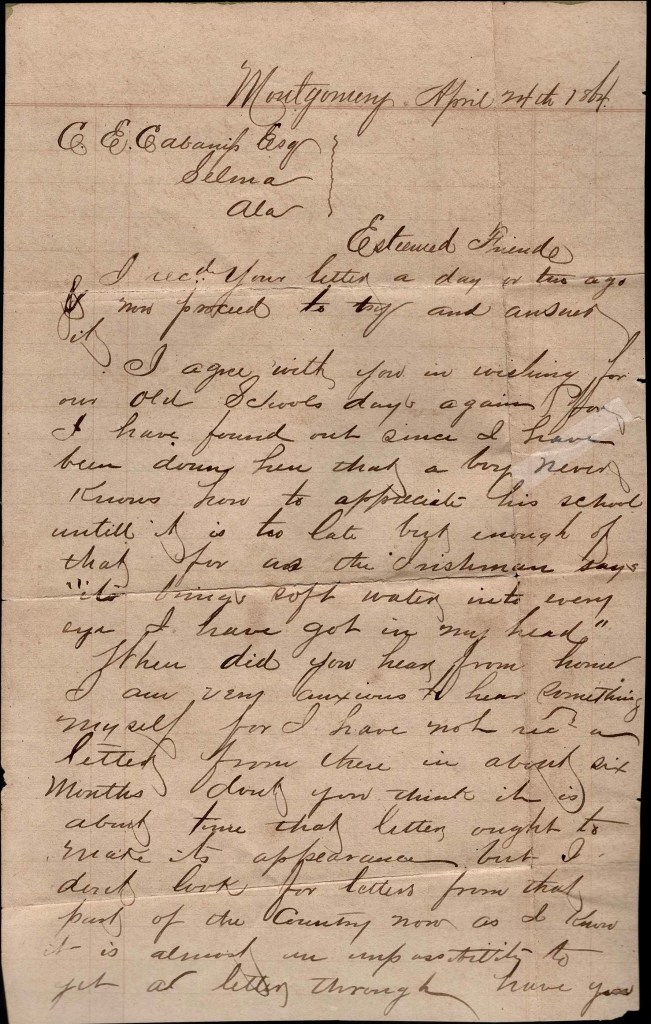 Montgomery April 24th 1864.
C. E. Cabaniss Esq
Selma
Ala
Esteemed Friend
I recd. Your letter a day or two ago
& now proceed to try and answer
it.
I agree with you in wishing for
our Old Schools days again for
I have found out since I have
been down here that a boy never
Knows how to appreciate his school
untill it is too late but enough of
that for as the Irishman says
"it brings soft water into every
eye I have got in my head"
When did you hear from home
I am very anxious to hear something
myself for I have not recd a
letter from there in about six
Months dont you think it is
about time that letter ought to
make its appearance but I
dont look for letters from that
part of the Country now as I Know
it is almost an impossibility to
get a letter through have you